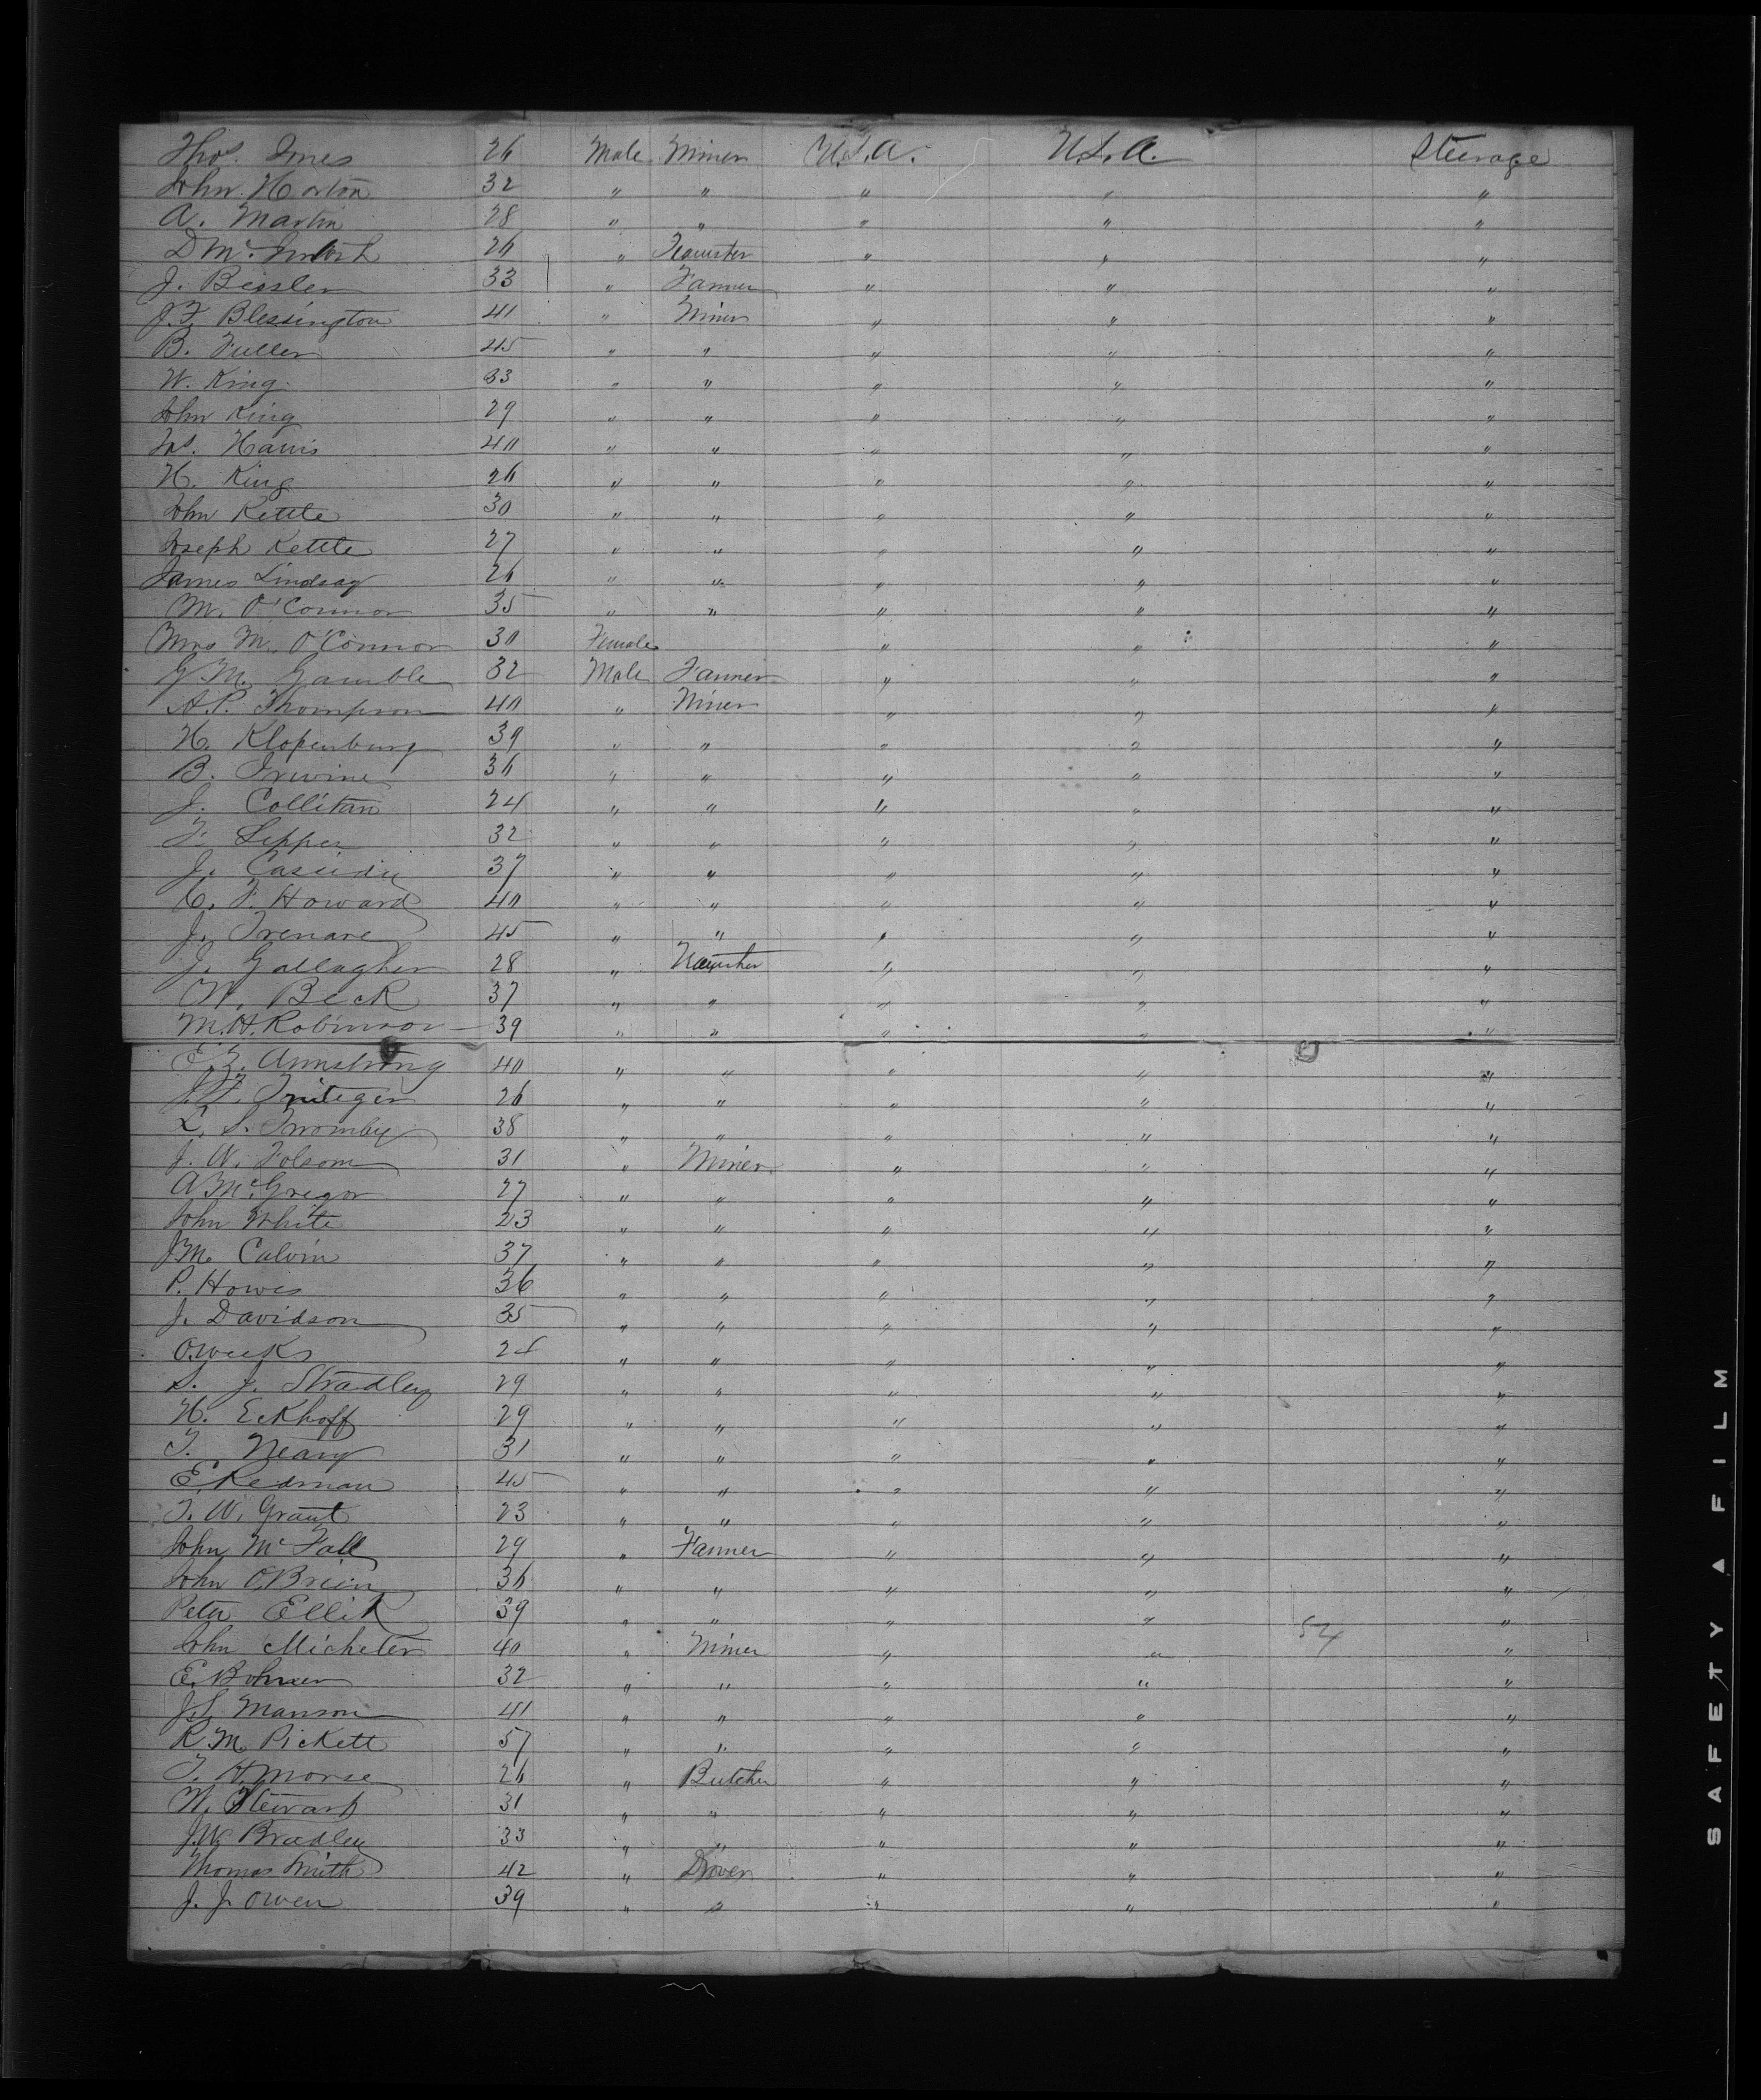 Thos. Jones 26 Male Miner U.S.A. U.S.A. Steerage
John Horton 32 " " " " "
A. Martin 28 " " " " "
D Mc. Intosh 26 " Teamster " " "
J. Bessler 33 " Farmer " " "
J.F. Blessington 41 " Miner " " "
B. Fuller 45 " " " " "
W. King 33 " " " " "
John King 29 " " " " "
Harris 40 " " " " "
H. King 26 " " " " "
John Kettle 30 " " " " "
Joseph Kettle 27 " " " " "
James Lindsay 26 " " " " "
M. O'Connor 35 " " " " "
Mrs M. O'Connor 30 Female " " "
G.M. Gamble 32 Male Farmer " " "
A.P. Thompson 40 " Miner " " "
H. Klopenburg 39 " " " " "
B. Irwine 36 " " " " "
J. Collitan 24 " " " " "
F. Lepper 32 " " " " "
J. Cassidy 37 " " " " "
C. F. Howard 40 " " " " "
J. Trenare 45 " " " " "
J. Gallagher 28 " " " "
W. Beck 37 " " " " "
M.H. Robinson 39 " " " " "
E.Z. Armstrong 40 " " " " "
26 " " " " "
L. S. Twomby 38 " " " " "
J. W. Folsom 31 " Miner " " "
A McGregor 27 " " " " "
John White 23 " " " " "
J.M. Calvin 37 " " " " "
P. Howes 36 " " " " "
J. Davidson 35 " " " " "
O. Weeks 24 " " " " "
S. J. Stradley 29 " " " " "
H. Eckhoff 29 " " " " "
T. Neary 31 " " " " "
E. Redman 45 " " " " "
T. W. Grant 23 " " " " "
John McFall 29 " Farmer " " "
John O'Brien 36 " " " " "
Peter Ellik 39 " " " " "
John Micheler 40 " Miner " " 54 "
E. Bohmen 32 " " " " "
J.S. Manson 41 " " " " "
R.M. Pickett 57 " " " " "
T. H. Morse 26 " Butcher " " "
W. Stewart 31 " " " " "
J.W. Bradley 33 " " " " "
Thomas Smith 42 " Drover " " "
J. J. Owen 39 " " " " "
SAFETY ▲ FILM